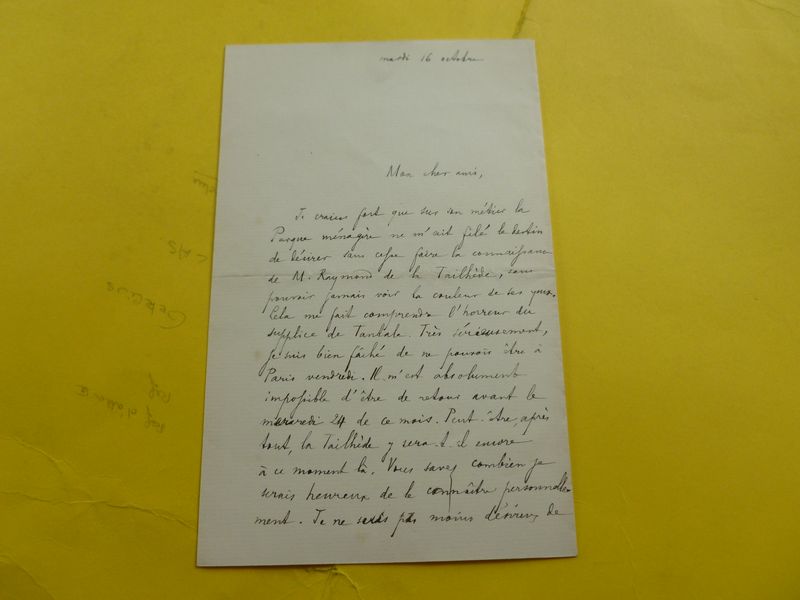 mardi 16 octobre
Mon cher ami,
Je crains fort que sur son métier la
Parque ménagère ne m'ait filé le destin
de désirer sans cesse faire la connaissance
de M. Raymond de la Tailhède, sans
pouvoir jamais voir la couleur de ses yeux.
Cela me fait comprendre l'horreur du
supplice de Tantale. Très sérieusement,
je suis bien fâché de ne pouvoir être à
Paris vendredi. Il m'est absolument
impossible d'être de retour avant le
mercredi 24 de ce mois. Peut-être, après
tout, la Tailhède y sera-t-il encore
à ce moment là. Vous savez combien je
serais heureux de le connaître personnelle-
ment. Je ne suis pas moins désireux de